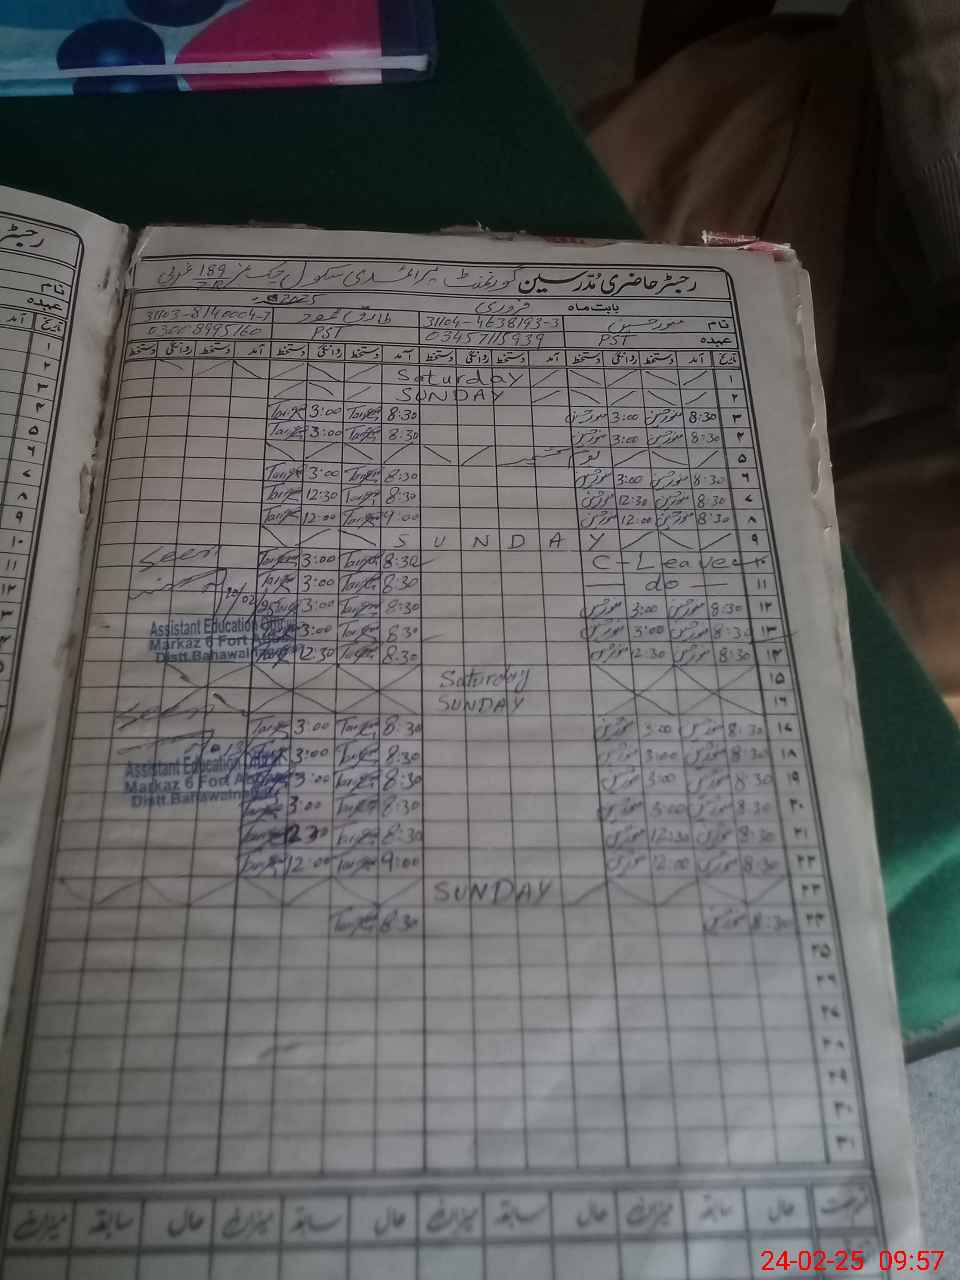 رجسٹر حاضری مدرسین گورنمنٹ پرائمری سکول چک نمبر 189/7R غربی
بابت ماہ فروری 2025
نام منور حسین 31104-4638193-3 طارق محمود 31103-8140004-7
عہدہ PST 03457115939 PST 03008995160
تاریخ آمد دستخط روانگی دستخط آمد دستخط روانگی دستخط آمد دستخط روانگی دستخط
۱ Saturday
۲ SUNDAY
۳ 8:30 3:00 8:30 Tariq 3:00 Tariq
۴ 8:30 3:00 8:30 Tariq 3:00 Tariq
۵ یوم کشمیر
۶ 8:30 3:00 8:30 Tariq 3:00 Tariq
۷ 8:30 12:30 8:30 Tariq 12:30 Tariq
۸ 8:30 12:00 9:00 Tariq 12:00 Tariq
۹ SUNDAY
۱۰ C-Leave 8:30 Tariq 3:00 Tariq Seen
۱۱ do 8:30 Tariq 3:00 Tariq
۱۲ 8:30 3:00 8:30 Tariq 3:00
۱۳ 8:30 3:00 8:30 Tariq 3:00
Assistant Education Officer
Markaz 6 Fort Abbas
Distt. Bahawalnagar
۱۴ 8:30 12:30 8:30 Tariq 12:30
۱۵ Saturday
۱۶ SUNDAY
Seen
۱۷ 8:30 3:00 8:30 Tariq 3:00 Tariq
۱۸ 8:30 3:00 8:30 Tariq 3:00
Assistant Education Officer
Markaz 6 Fort Abbas
Distt. Bahawalnagar
۱۹ 8:30 3:00 8:30 Tariq 3:00
۲۰ 8:30 3:00 8:30 Tariq 3:00 Tariq
۲۱ 8:30 12:30 8:30 Tariq Tariq
۲۲ 8:30 12:00 9:00 Tariq 12:00 Tariq
۲۳ SUNDAY
۲۴ 8:30 8:30 Tariq
۲۵
۲۶
۲۷
۲۸
۲۹
۳۰
۳۱
حال سابقہ میزان حال سابقہ میزان حال سابقہ میزان
24-02-25 09:57